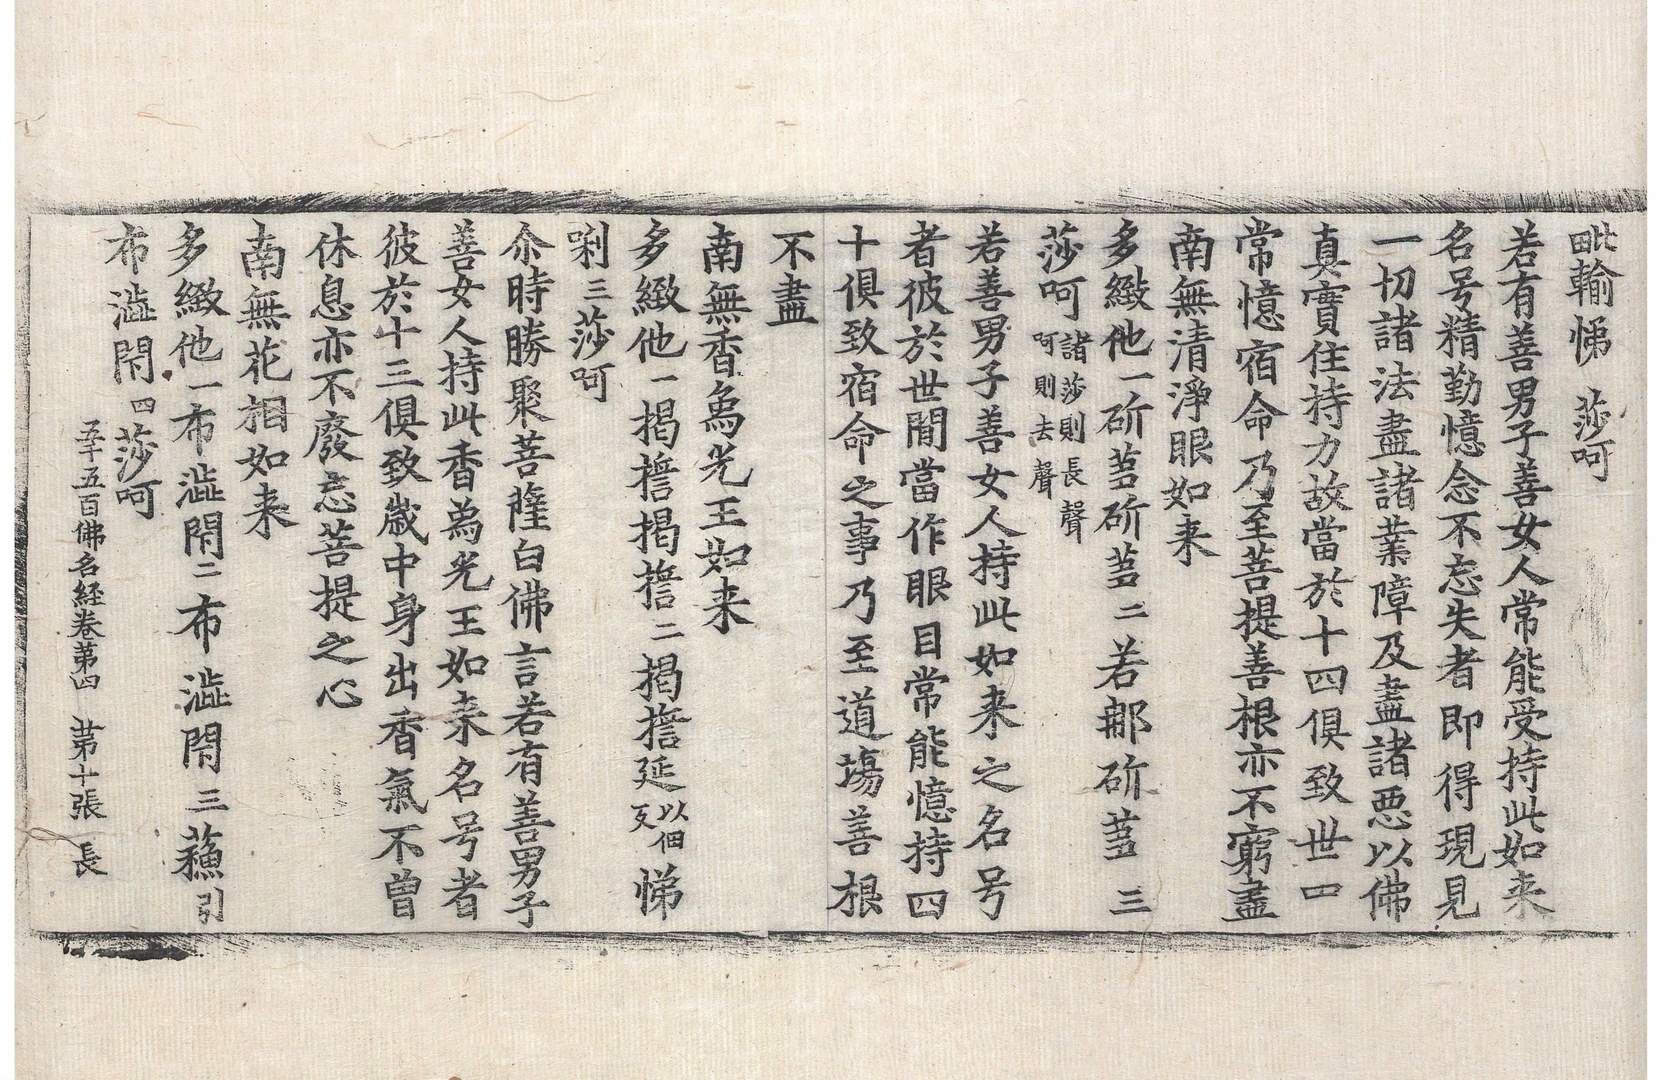 毗輸悌 莎呵
若有善男子善女人常能受持此如来
名号精勤憶念不忘失者即得現見
一切諸法盡諸業障及盡諸惡以佛
真實住持力故當於十四俱致世中
常憶宿命乃至菩提善根亦不窮盡
南無清淨眼如来
多緻他一斫蒭斫蒭二若郍斫蒭三
莎呵諸莎則長聲呵則去聲
若善男子善女人持此如来之名号
者彼於世間當作眼目常能憶持四
十俱致宿命之事乃至道場善根
不盡
南無香為光王如来
多緻他一揭㨾揭㨾二揭㨾延以佃反悌
唎三莎呵
尒時勝聚菩薩白佛言若有善男子
善女人持此香為光王如来名号者
彼於十三俱致歲中身出香氣不曾
休息亦不廢忘菩提之心
南無花相如来
多緻他一布澁閇二布澁閇三蘓引
布澁閇四莎呵
五千五百佛名経卷第四 第十張 長